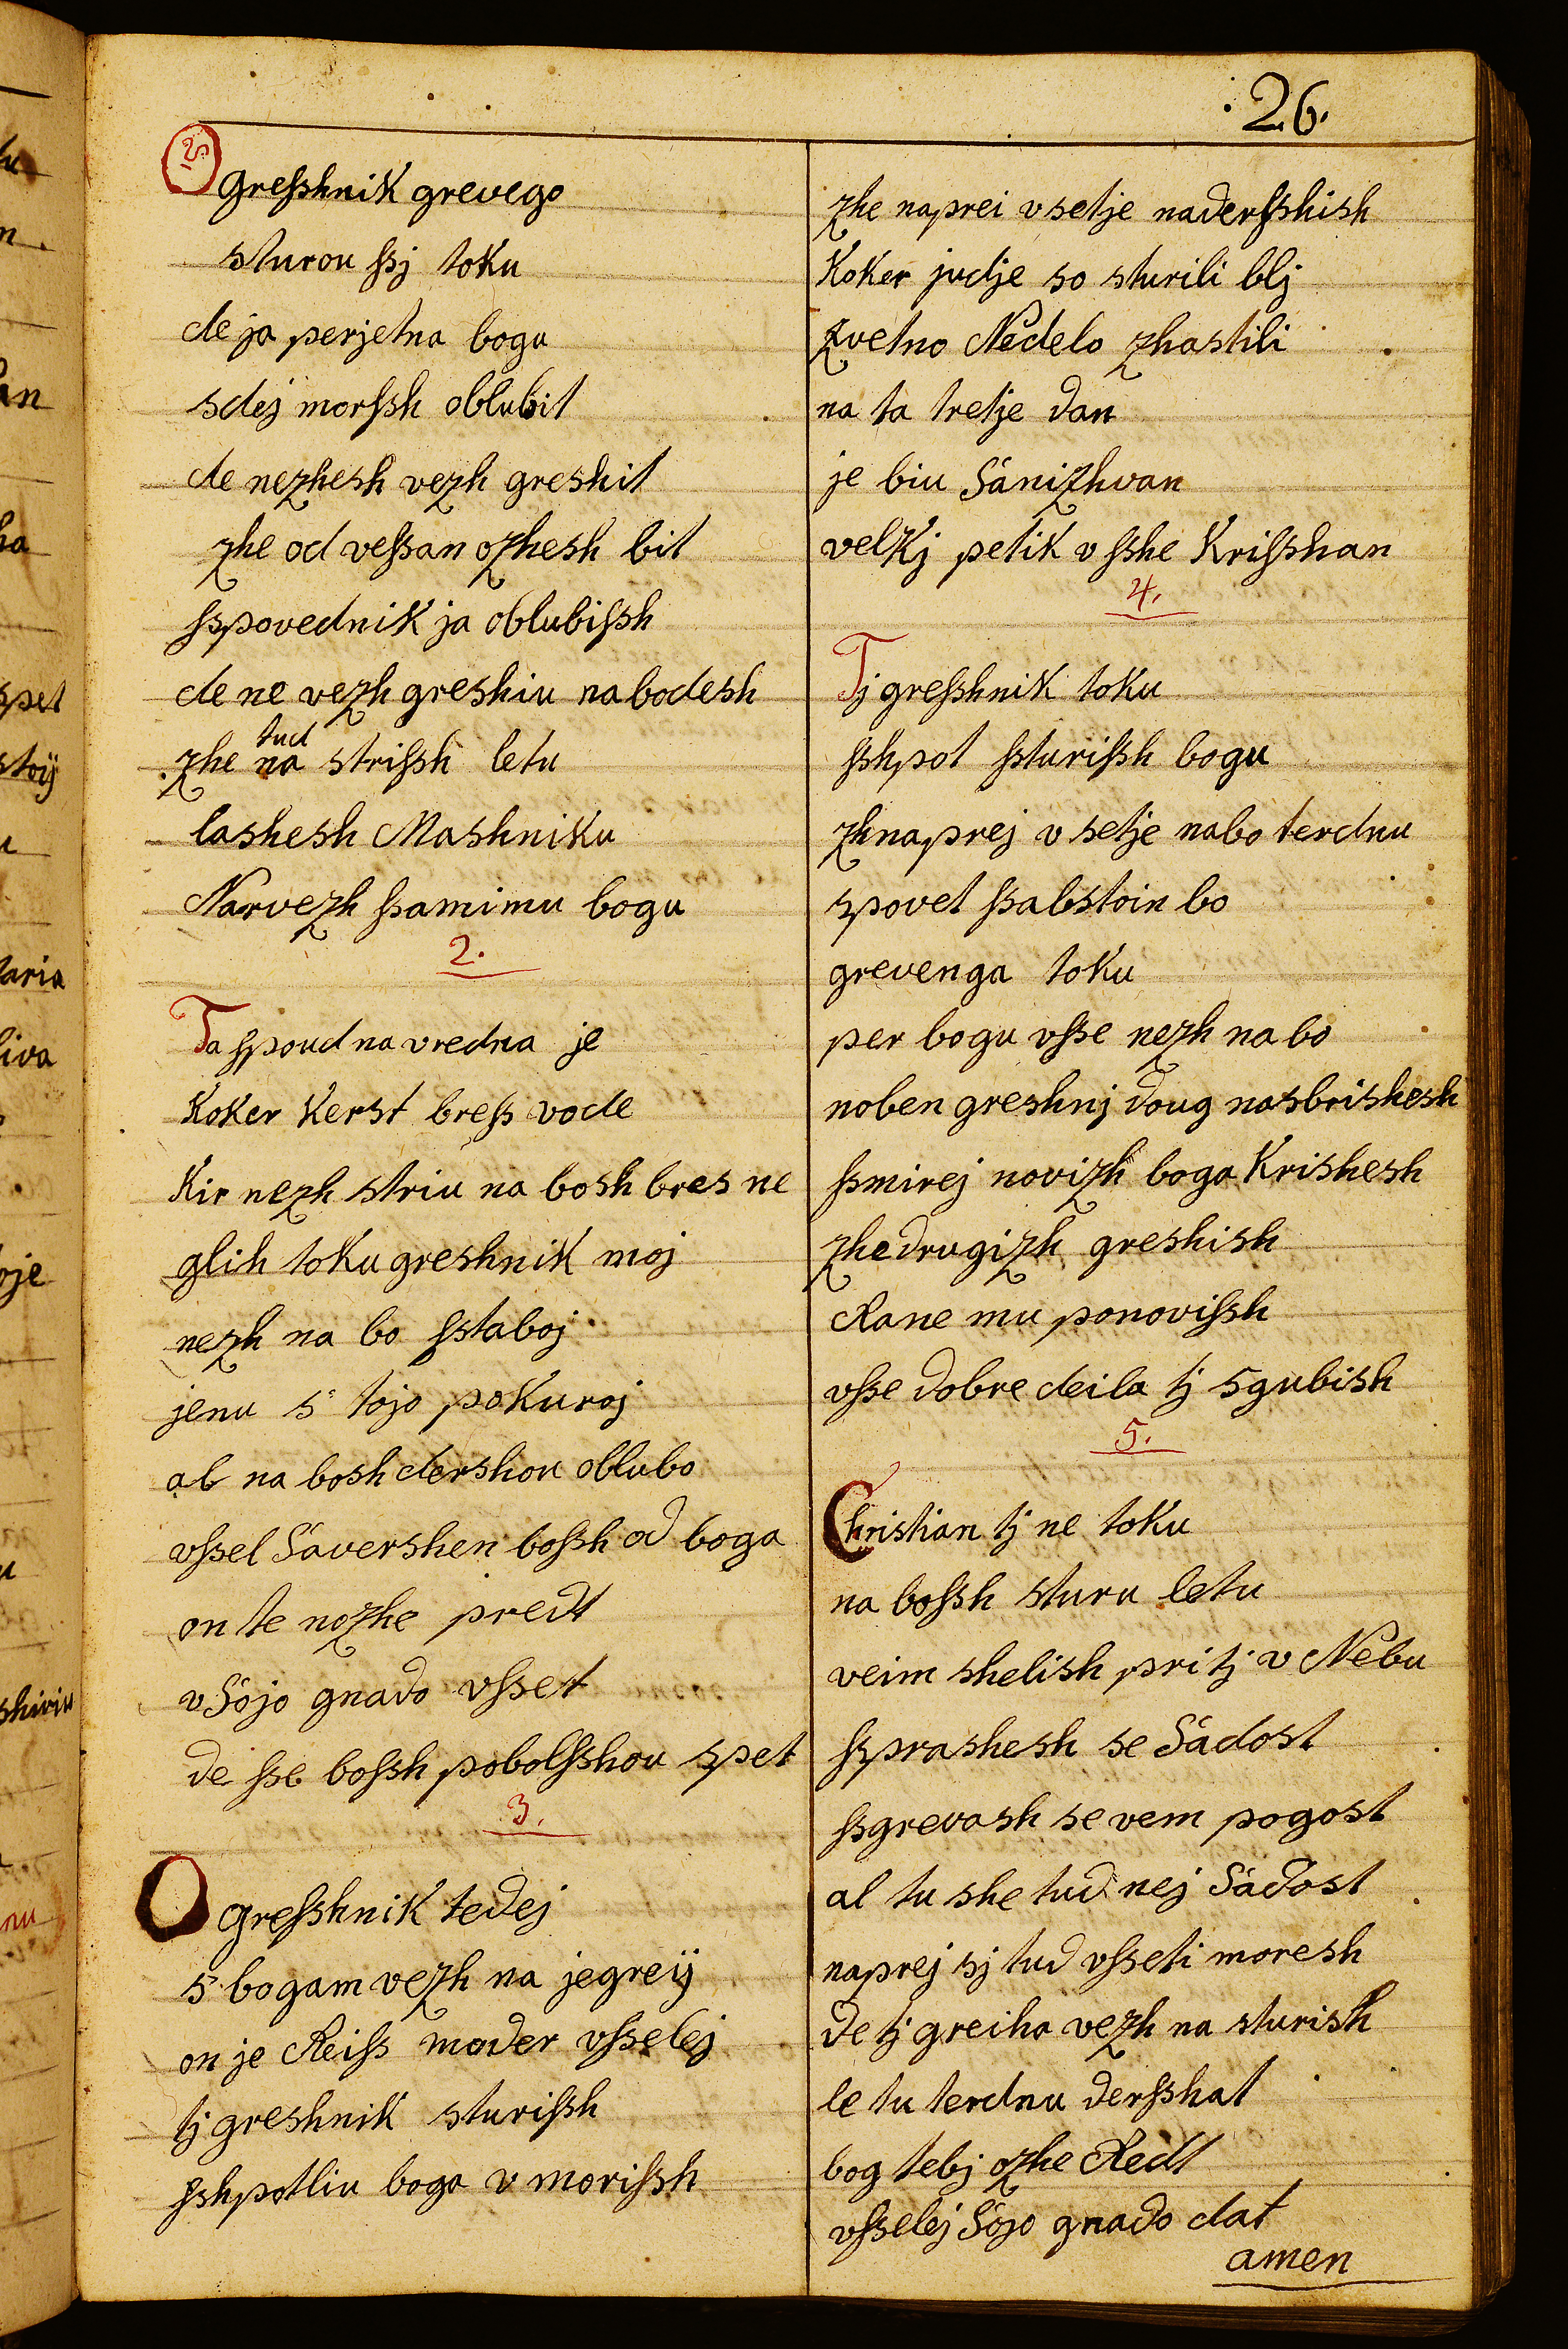 26.
25
Greſshnik grevego
sturou ſsj toku
de ja perjetna bogu
sdej morſsh oblubit
de nezhesh vezh greshit
zhe od veſsan ozhesh bit
ſspovednik ja oblubiſsh
de ne vezh greshiu nabodesh
tud
zhe na striſsh letu
lashesh Mashniku
Narvezh ſsamimu bogu
2.
Ta ſspoud na vredna je
Koker Kerst breſs vode
Kir nezh striu na bosh bres ne
glih toku greshnik moj
nezh na bo ſstaboj
jenu s' tojo pokuroj
al na bosh dershou oblubo
vſsel Savershen boſsh od boga
on te nozhe predt
v Sojo gnado vſset
de ſse boſsh pobolſshou spet
3.
O greſshnik tedej
s bogam vezh na jegreij
on je Reiſs moder vſselej
tj greshnik sturiſsh
ſshpotliu boga v moriſsh
zhe naprei v setje naderſshish
Koker judje so sturili blj
zvetno Nedelo zhastili
na ta tretje dan
je biu Sanizhvan
velkj petik v ſshe Kriſshan
4.
Tj greſshnik toku
ſshpot ſsturiſsh bogu
zhnaprej v setje nabo terdnu
spovet ſsabstoin bo
grevenga toku
per bogu vſse nezh na bo
noben greshnj doug nasbrishesh
ſsmirej novizh boga Krishesh
zhe drugizh greshish
Rane mu ponoviſsh
vſse dobre deila tj sgubish
5.
Christian tj ne toku
na boſsh sturu letu
veim shelish pritj v Nebu
ſsprashesh se Sadost
ſsgrevash se vem pogost
al tu she tud nej Sadost
naprej sj tud vſseti moresh
de tj greiha vezh na sturish
le tu terdnu derſshat
bog tebj ozhe Redt
vſselej Sojo gnado dat
amen